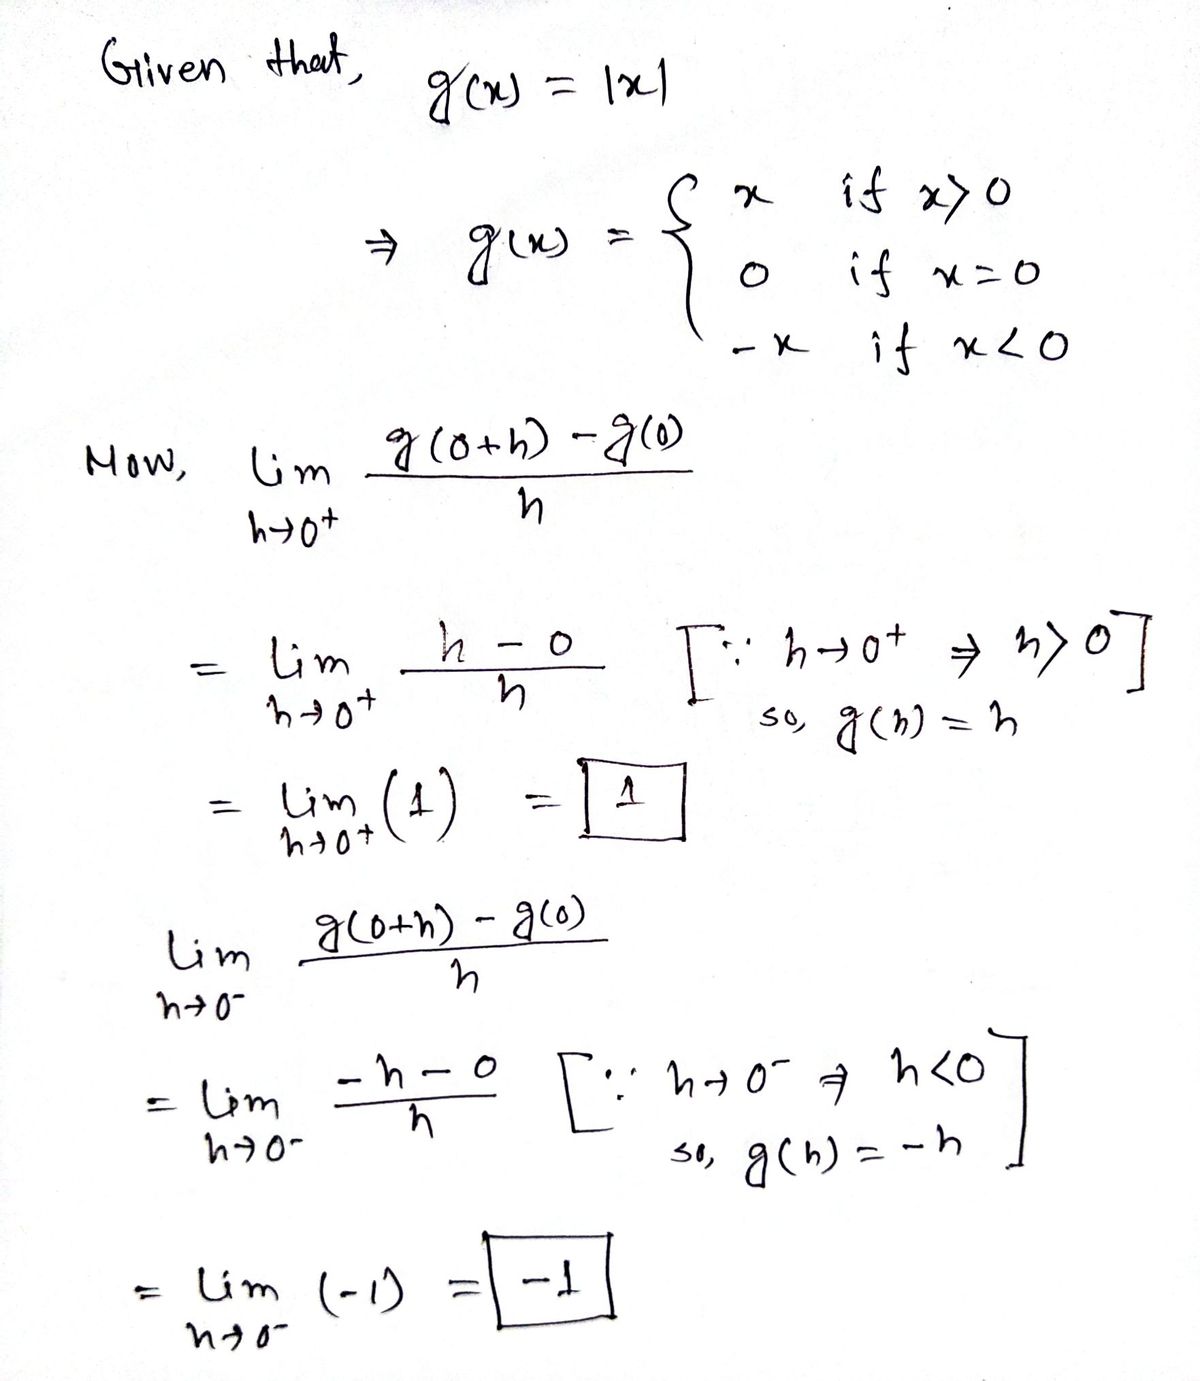 Given that, g(x) = |x|
⇒ g(x) = { x if x > 0
0 if x = 0
-x if x < 0
Now, lim h→0+ (g(0+h) - g(0)) / h
= lim h→0+ (h - 0) / h [∵ h→0+ ⇒ h > 0]
so, g(h) = h
= lim h→0+ (1) = 1
lim h→0- (g(0+h) - g(0)) / h
= lim h→0- (-h - 0) / h [∵ h→0- ⇒ h < 0
so, g(h) = -h]
= lim h→0- (-1) = -1